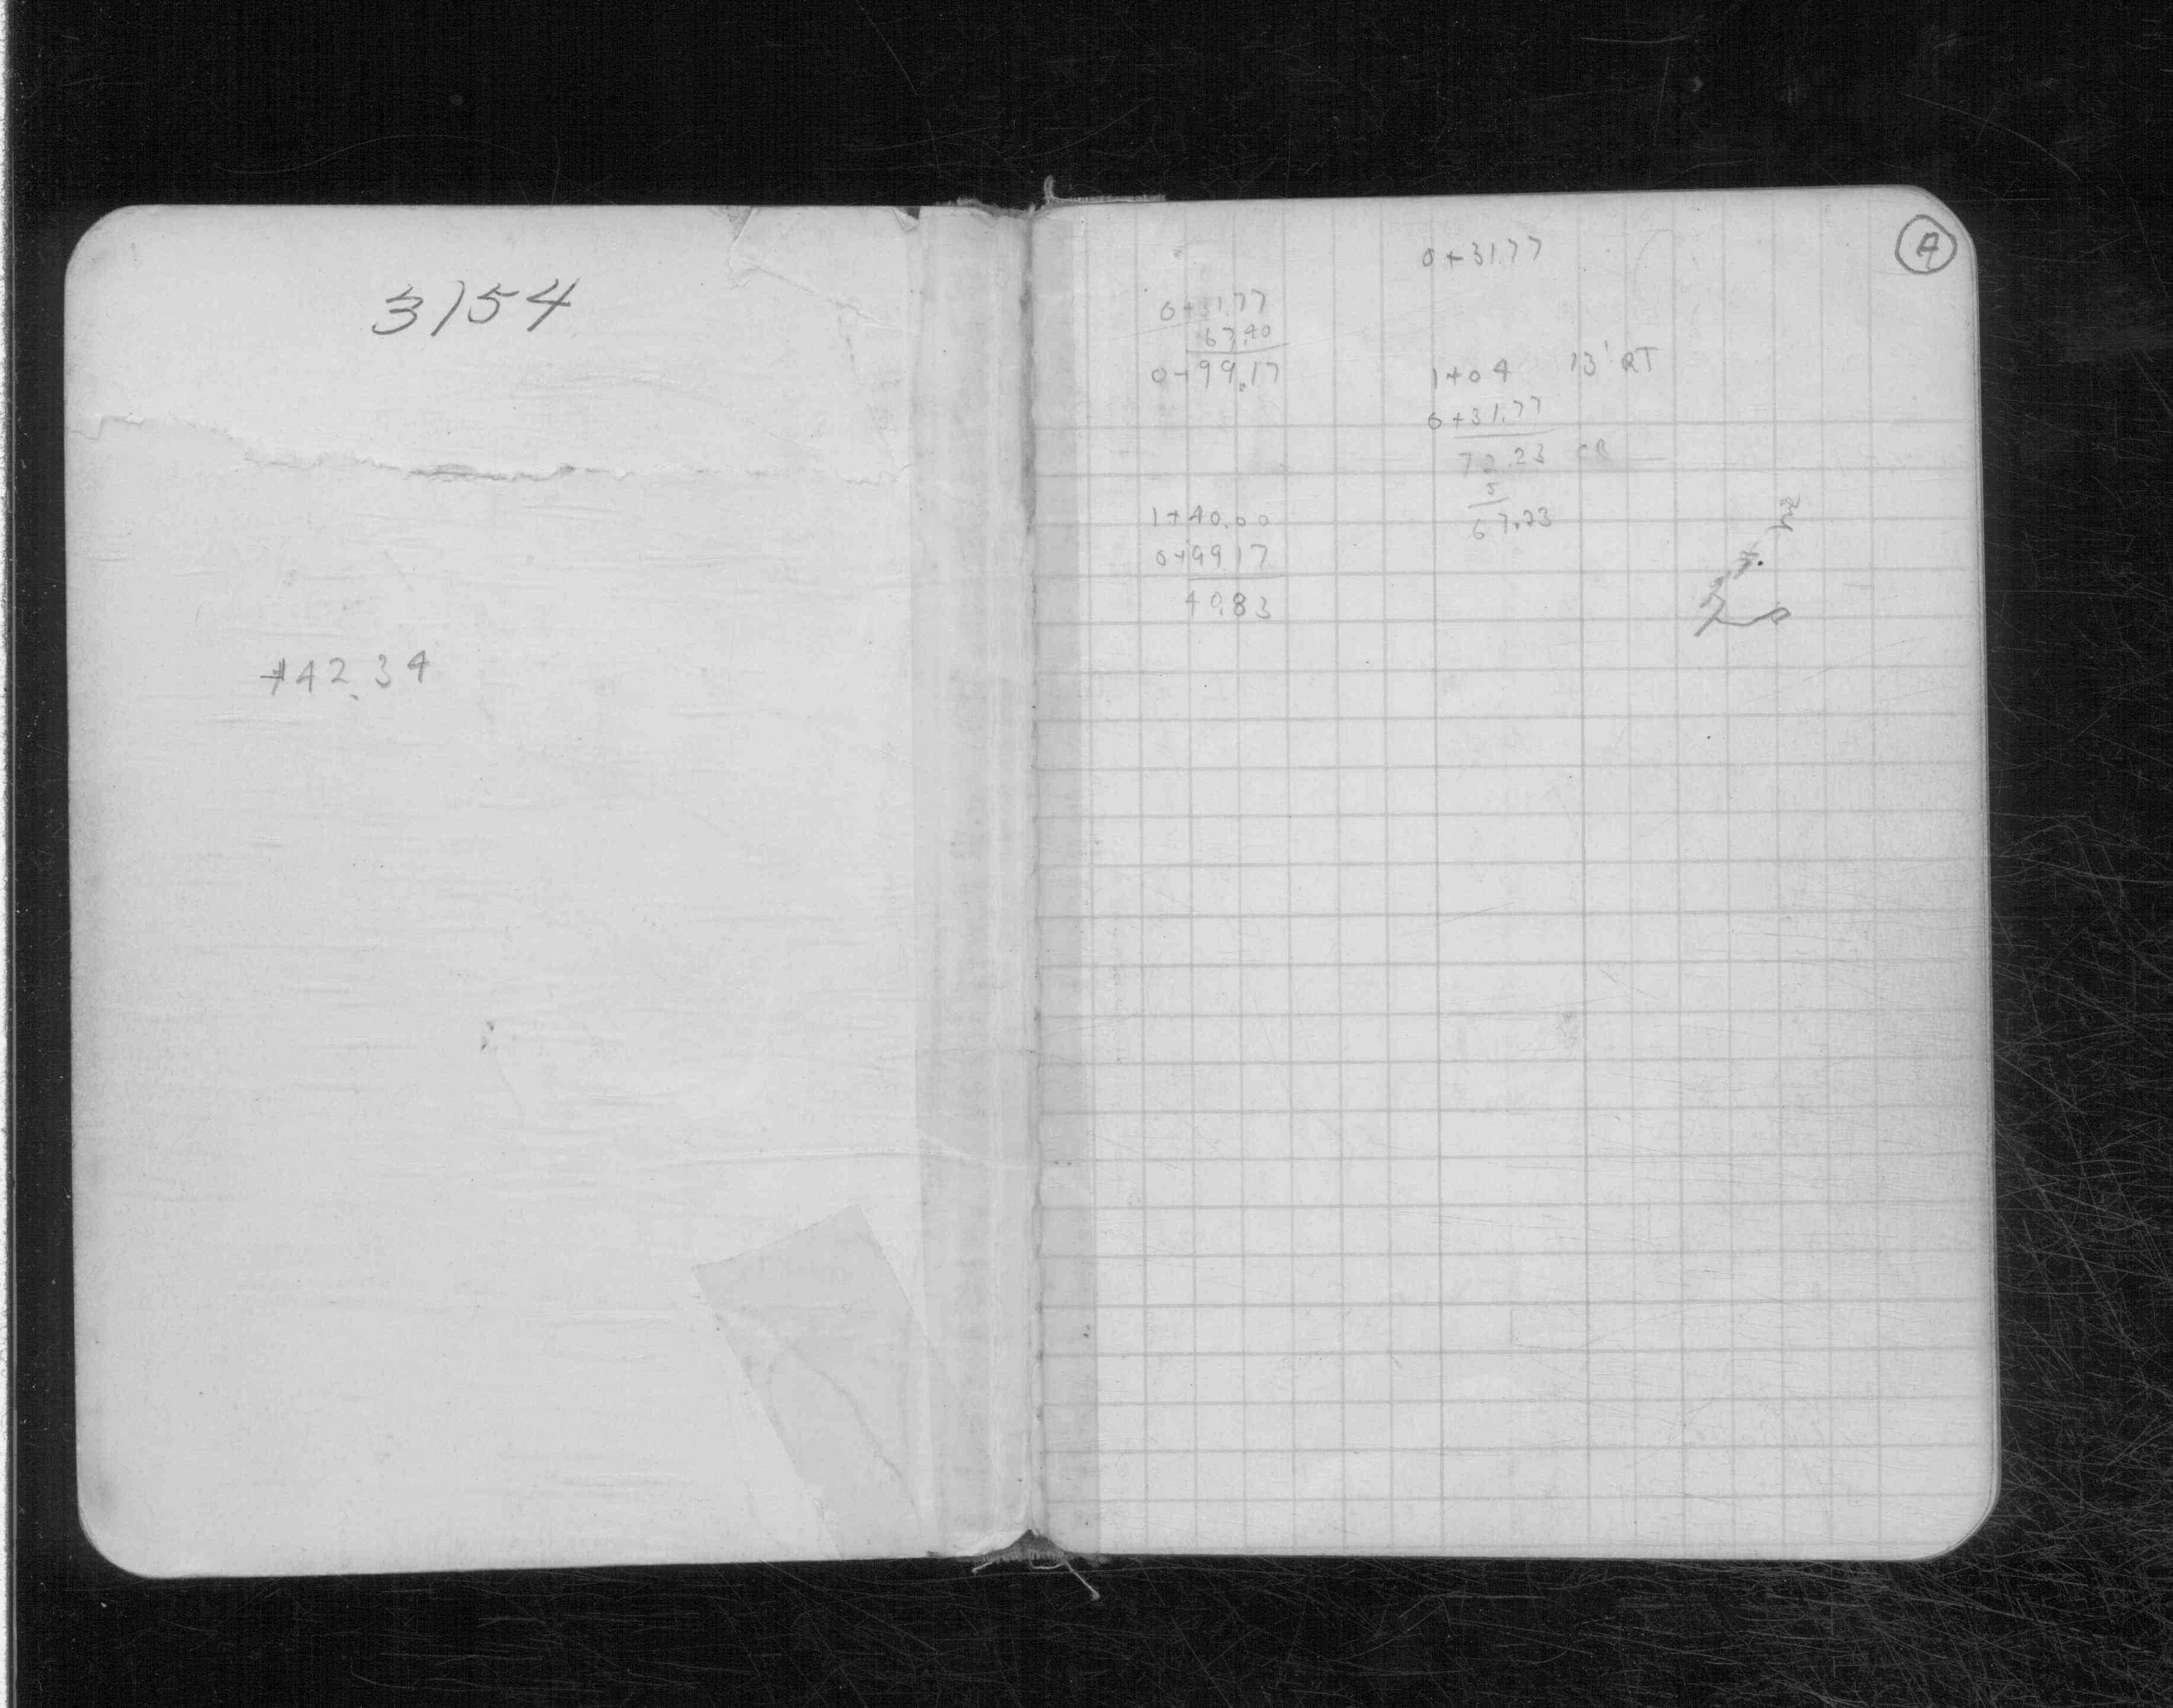 3154
+42.34
A
0+31.77
0+31.77
67.40
0+99.17
1+04 13' RT
0+31.77
72.23 CR
5
67.23
1+40.00
0+99 17
40.83